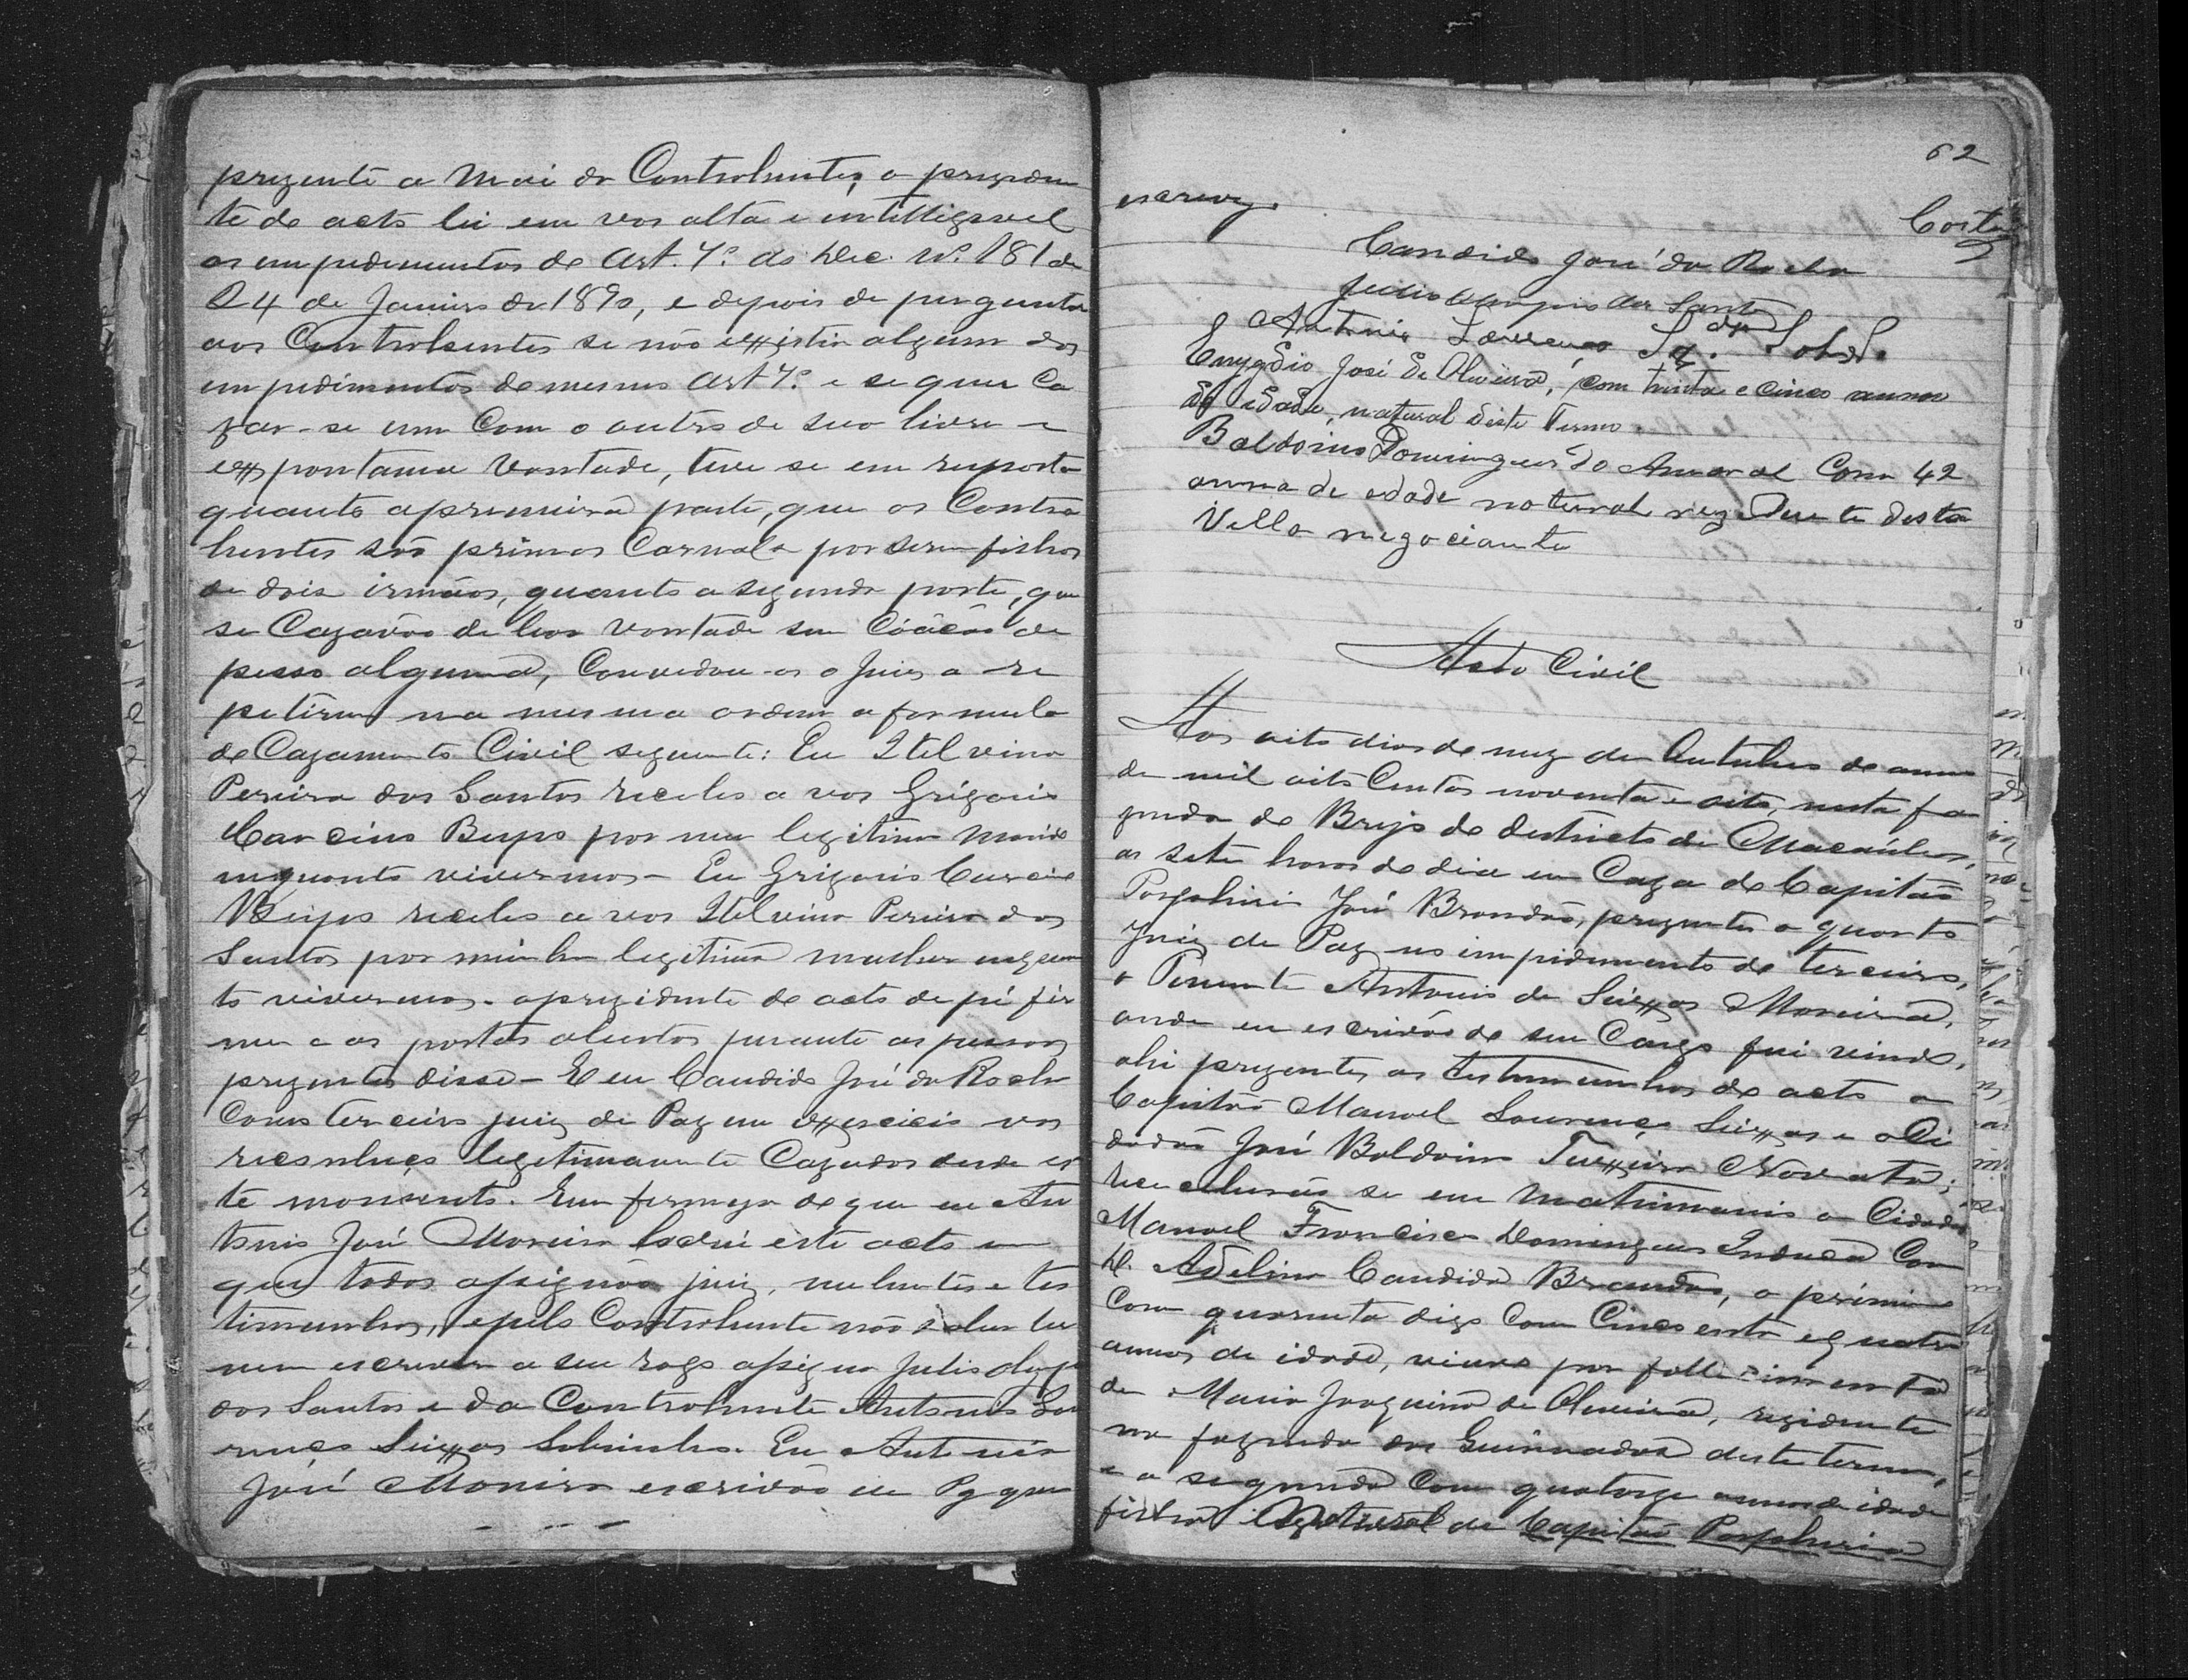 prezente a Mai da Contrahente, o preziden
te do acto leu em vos alta e intelligivel
os impedimentos do Art. 7º do Dec. Nº 181 de
24 de Janeiro de 1890, e depois de perguntar
aos Contrahentes se não existia algum dos
impedimentos do mesmo Art 7º e se quer Ca
zar-se um Com o outro de sua livre e
expontania Vontade, teve se em resposta
quanto a primeira parte, que os Contra
hentes são primos Carnala por serem filhos
de dois irmãos, quanto a segunda parte, que
se Cazavão de boa Vontade sem Cóação de
pessoa alguma, Convidou-os o Juiz a re
petirem na mesma ordem a formula
do Cazamento Civil seguinte: Eu Itelvina
Pereira dos Santos recebo a vos Grigorio
por meu legitimo marido
enquanto vivermos - Eu Grigorio
recebo a vos Itelvina Pereira dos
Santos por minha legitima mulher enquan
to vivermos. o prezidente do acto de pé fir
me e as portas abertas perante as pessoas
prezentes disse - E eu Candido José da Rocha
Como terceiro juiz de Paz em exzercicio vos
reconheço legitimamente Cazados desde es
te momento. Em firmeza do que eu An
tonio José Moreira lavrei este acto em
que todos assignão juiz, nubentes e tes
timunhas, e pelo Contrahente não saber ler
nem escrever a seu rogo assigna Julio Olympio
dos Santos e da Contrahente Antonio Lou
renço Seixas Sobrinho. Eu Antonio
José Moreira escrivão de Pz que
62
escrevy.
Costa
Candido José da Rocha
Julio Olympio dos Santos
Antonio Lourenço Sxª Sobrº
Emygdio José de Oliveira, com trinta e cinco annos
de edade, natural deste Termo.
Baldoino Domingues do Amaral Com 42
annos de edade natural rezedente desta
Villa negociante
Acto Civil
Aos oito dias do mez de Outubro do anno
de mil oito Centos noventa e oito, nesta fa
zenda do Brejo do districto de Macaúbas,
as sete horas do dia em Caza do Capitão
Porphirio José Brandão, prezente o quarto
Juiz de Paz no impedimento do terceiro,
o Tenente Antonio de Seixas Moreira,
onde eu escrivão de seu Cargo fui vindo,
ahi prezentes as testemunhas do acto o
Capitão Manoel Lourenço Seixas e o Ci
dadão José Baldoino Teixeira Novato;
receberão se em matrimonio o Cidadão
Manoel Francisco Domingues Com
D. Adelina Candida Brandão, o primeiro
Com quarenta digo Com Cincoenta e quatro
annos de idade, viuvo por fallecimento
de Maria Joaquina de Oliveira, rezidente
na fazenda das deste termo,
e a segunda Com quatorze annos de idade
filha natural do Capitão Porphirio